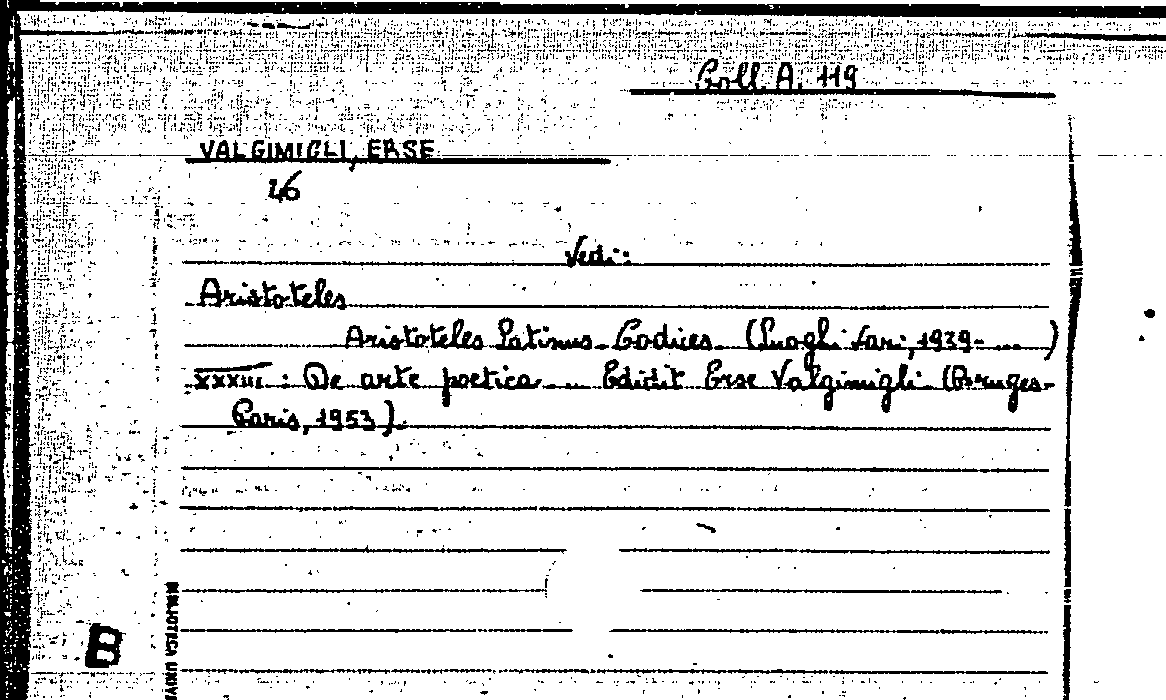 Coll. A. 119
VALGIMIGLI, ERSE
46
Vedi:
Aristoteles
Aristoteles Latinus. Codices. (Luoghi Vari, 1939- ... )
XXXIII : De arte poetica ... Edidit Erse Valgimigli (Bruges-
Paris, 1953).
B
BIBLIOTECA